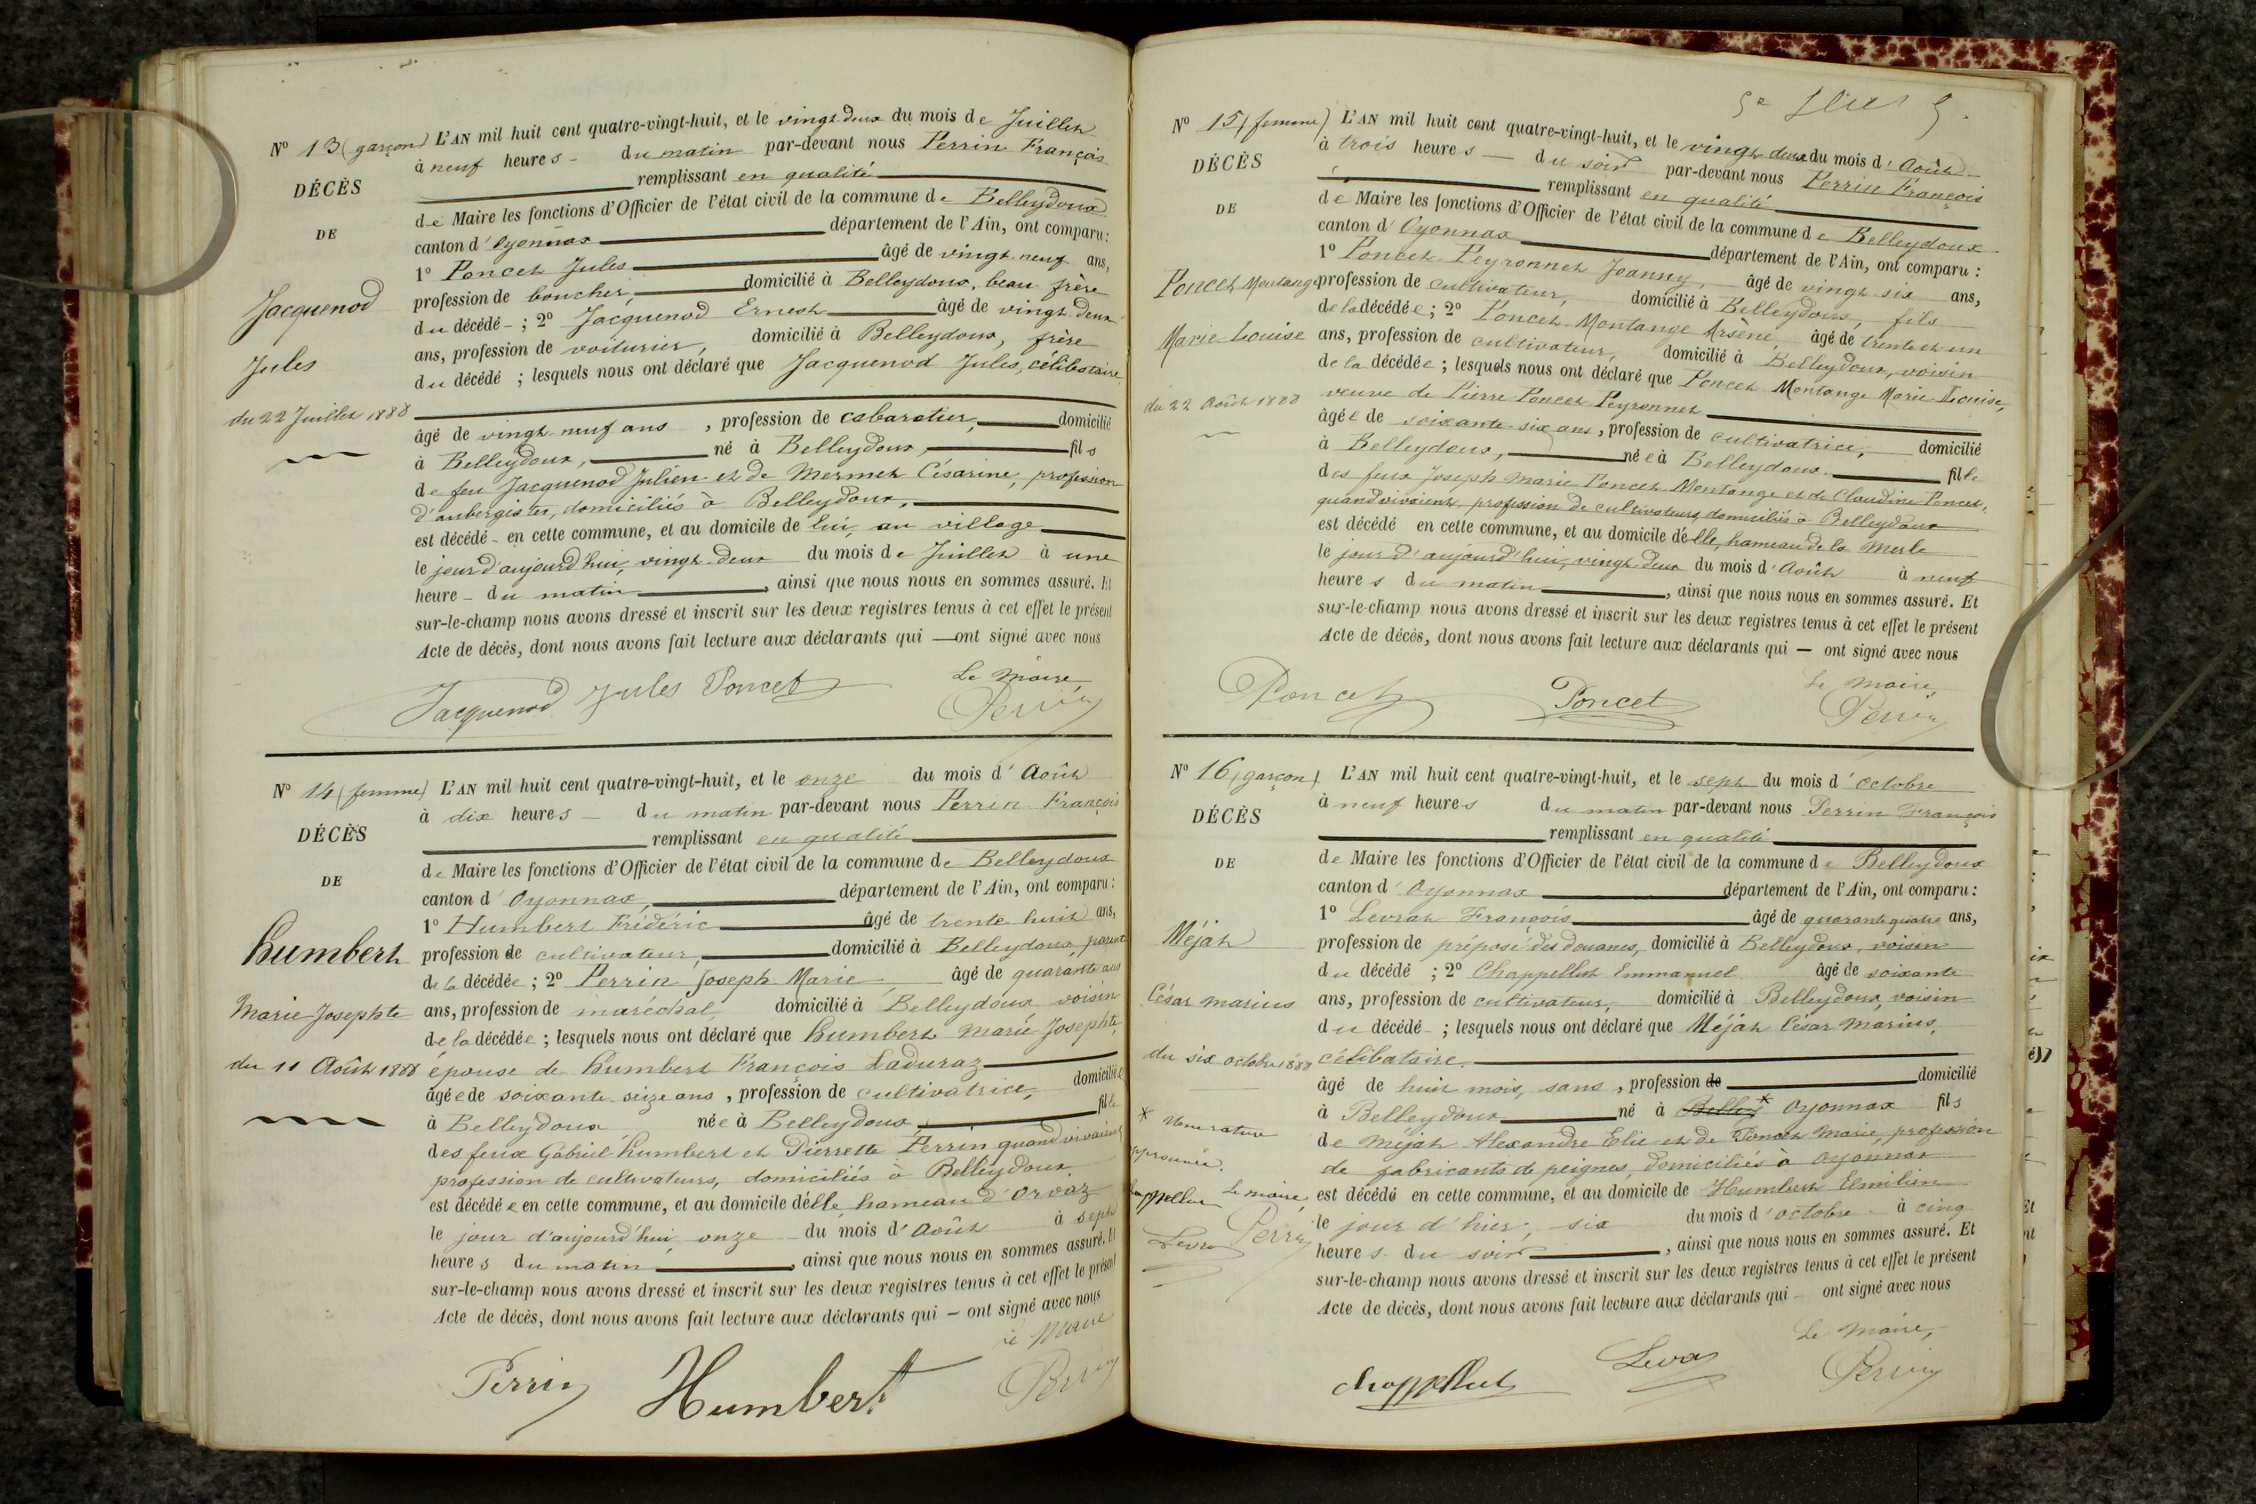 Nº 13 (garçon)
DÉCÈS
DE
Jacquenod
Jules
du 22 Juillet 1888
L'AN mil huit cent quatre-vingt-huit, et le vingt deux du mois de Juillet
à neuf heures du matin par-devant nous Perrin François
remplissant en qualité
de Maire les fonctions d'Officier de l'état civil de la commune de Belleydoux
canton d'Oyonnax département de l'Ain, ont comparu:
1º Poncet Jules âgé de vingt neuf ans,
profession de boucher, domicilié à Belleydoux, beau frère
du décédé ; 2º Jacquenod Ernest âgé de vingt deux
ans, profession de voiturier, domicilié à Belleydoux, frère
du décédé ; lesquels nous ont déclaré que Jacquenod Jules, célibataire
âgé de vingt neuf ans, profession de cabaretier, domicilié
à Belleydoux, né à Belleydoux, fils
de feu Jacquenod Julien et de Mermet Césarine, profession
d'aubergistes, domiciliés à Belleydoux,
est décédé en cette commune, et au domicile de lui, au village
le jour d'aujourd'hui, vingt-deux du mois de Juillet à une
heure du matin, ainsi que nous nous en sommes assuré. Et
sur-le-champ nous avons dressé et inscrit sur les deux registres tenus à cet effet le présent
Acte de décès, dont nous avons fait lecture aux déclarants qui — ont signé avec nous
Le Maire,
Jacquenod Jules Poncet Perrin
Nº 14 (femme)
DÉCÈS
DE
humbert
Marie Josephte
du 11 Août 1888
L'AN mil huit cent quatre-vingt-huit, et le onze du mois d'Août
à dix heures du matin par-devant nous Perrin François
remplissant en qualité
de Maire les fonctions d'Officier de l'état civil de la commune de Belleydoux
canton d'Oyonnax, département de l'Ain, ont comparu:
1º Humbert Frédéric âgé de trente huit ans,
profession de cultivateur, domicilié à Belleydoux, parent
de la décédée ; 2º Perrin Joseph Marie, âgé de quarante ans
ans, profession de maréchal, domicilié à Belleydoux voisin
de la décédée ; lesquels nous ont déclaré que humbert Marie Josephte,
épouse de humbert François Laduraz
âgée de soixante seize ans, profession de cultivatrice, domiciliée
à Belleydoux née à Belleydoux, fille
des feux Gabriel humbert et Pierrette Perrin quand vivaient
profession de cultivateurs, domiciliés à Belleydoux
est décédée en cette commune, et au domicile d'elle, hameau d'Orvaz
le jour d'aujourd'hui onze du mois d'Août à sept
heures du matin, ainsi que nous nous en sommes assuré. Et
sur-le-champ nous avons dressé et inscrit sur les deux registres tenus à cet effet le présent
Acte de décès, dont nous avons fait lecture aux déclarants qui — ont signé avec nous
Le Maire
Perrin Humbert Perrin
Nº 15 (femme)
DÉCÈS
DE
Poncet Montange
Marie Louise
du 22 Août 1888
L'AN mil huit cent quatre-vingt-huit, et le vingt deux du mois d'Août
à trois heures du soir par-devant nous Perrin François
remplissant en qualité
de Maire les fonctions d'Officier de l'état civil de la commune de Belleydoux
canton d'Oyonnax département de l'Ain, ont comparu :
1º Poncet Peyronnet Joanny, âgé de vingt six ans,
profession de cultivateur, domicilié à Belleydoux, fils
de la décédée ; 2º Poncet Montange Arsène, âgé de trente et un
ans, profession de cultivateur, domicilié à Belleydoux, voisin
de la décédée ; lesquels nous ont déclaré que Poncet Montange Marie Louise,
veuve de Pierre Poncet Peyronnet
âgée de soixante six ans, profession de cultivatrice, domicilié
à Belleydoux, née à Belleydoux, fille
des feux Joseph Marie Poncet Montange et de Claudine Poncet,
quand vivaient, profession de cultivateurs, domiciliés à Belleydoux
est décédé en cette commune, et au domicile d'elle, hameau de la Merle
le jour d'aujourd'hui, vingt deux du mois d'Août à neuf
heures du matin, ainsi que nous nous en sommes assuré. Et
sur-le-champ nous avons dressé et inscrit sur les deux registres tenus à cet effet le présent
Acte de décès, dont nous avons fait lecture aux déclarants qui — ont signé avec nous
Le Maire,
Poncet Poncet Perrin
Nº 16 (garçon)
DÉCÈS
DE
Méjat
César Marius
du six octobre 1888
L'AN mil huit cent quatre-vingt-huit, et le sept du mois d'octobre
à neuf heures du matin par-devant nous Perrin François
remplissant en qualité
de Maire les fonctions d'Officier de l'état civil de la commune de Belleydoux
canton d'Oyonnax département de l'Ain, ont comparu :
1º Levrat François âgé de quarante quatre ans,
profession de préposé des douanes, domicilié à Belleydoux, voisin
du décédé ; 2º Chappellut Emmanuel âgé de soixante
ans, profession de cultivateur, domicilié à Belleydoux, voisin
du décédé ; lesquels nous ont déclaré que Méjat César Marius,
célibataire.
âgé de huit mois, sans, profession de domicilié
à Belleydoux né à Belley * Oyonnax fils
de Méjat Alexandre Elie et de Poncet Marie, profession
de fabricants de peignes, domiciliés à Oyonnax
est décédé en cette commune, et au domicile de Humbert Emilien
le jour d'hier, six du mois d'octobre à cinq
heures du soir, ainsi que nous nous en sommes assuré. Et
sur-le-champ nous avons dressé et inscrit sur les deux registres tenus à cet effet le présent
Acte de décès, dont nous avons fait lecture aux déclarants qui — ont signé avec nous
* Une rature
approuvée.
Le maire,
Perrin
Le Maire,
Chappellut Levrat Perrin